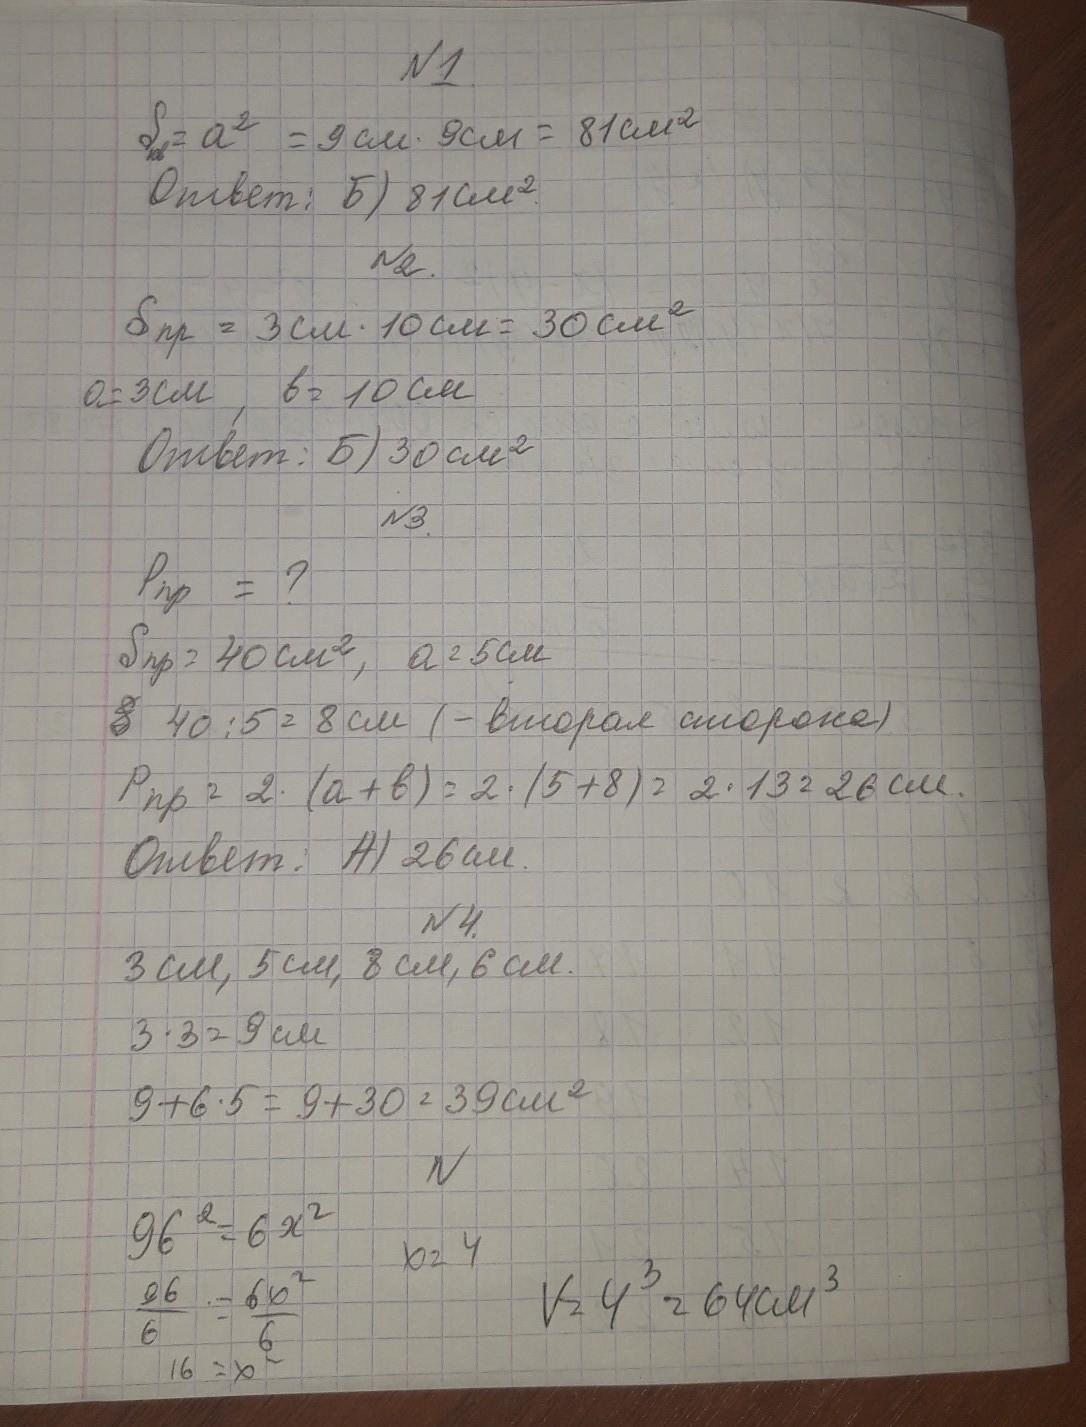 N1
Sкв = a² = 9см · 9см = 81см²
Ответ: Б) 81см².
N2.
Sпр = 3см · 10см = 30см²
a = 3см, в = 10см
Ответ: Б) 30см²
N3.
Pпр = ?
Sпр = 40см², a = 5см
40 : 5 = 8см (- вторая сторона)
Pпр = 2 · (a + в) = 2 · (5 + 8) = 2 · 13 = 26см.
Ответ: А) 26см.
N4.
3см, 5см, 8см, 6см.
3 · 3 = 9см
9 + 6 · 5 = 9 + 30 = 39см²
N
96² = 6x²
x = 4
96/6 = 6x²/6
V = 4³ = 64см³
16 = x²